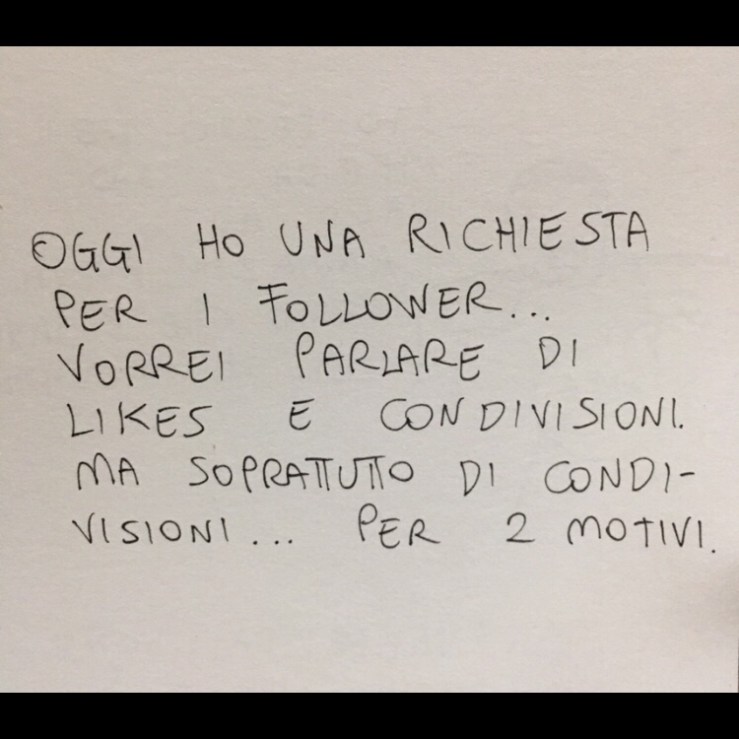 OGGI HO UNA RICHIESTA
PER I FOLLOWER...
VORREI PARLARE DI
LIKES E CONDIVISIONI.
MA SOPRATTUTTO DI CONDI-
VISIONI... PER 2 MOTIVI.